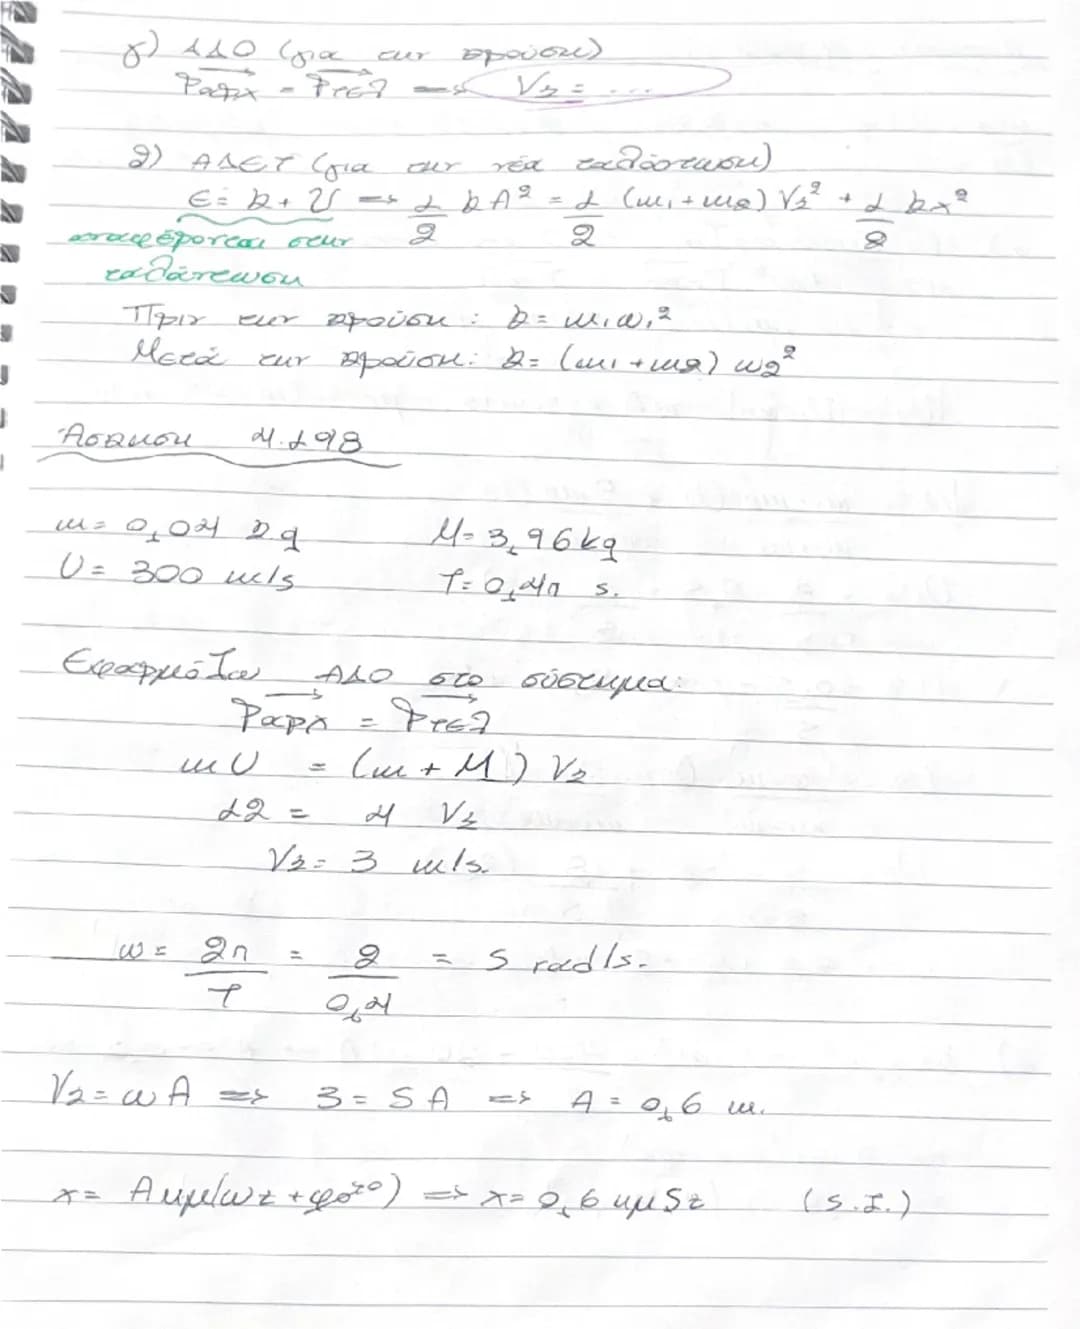 γ) ΑΔΟ (για την κρούση)
Pαρχ = Pτελ => V₂ = ...
2) ΑΔΕΤ (για την νέα ταλάντωση)
E = k + U => 1/2 k A² = 1/2 (m₁ + m₂) V₂² + 1/2 k x²
αναφέρονται στην
ταλάντωση
Πριν την κρούση: k = m₁ω₁²
Μετά την κρούση: k = (m₁ + m₂) ω₂²
Άσκηση 4.198
m = 0,04 kg M = 3,96 kg
U = 300 m/s T = 0,4π s.
Εφαρμόζω ΑΔΟ στο σύστημα:
Pαρχ = Pτελ
m U = (m + M) V₂
12 = 4 V₂
V₂ = 3 m/s.
ω = 2π/T = 2/0,4 = 5 rad/s.
V₂ = ω A => 3 = 5 A => A = 0,6 m.
x = A ημ(ωt + φ₀⁼⁰) => x = 0,6 ημ5t (S.I.)